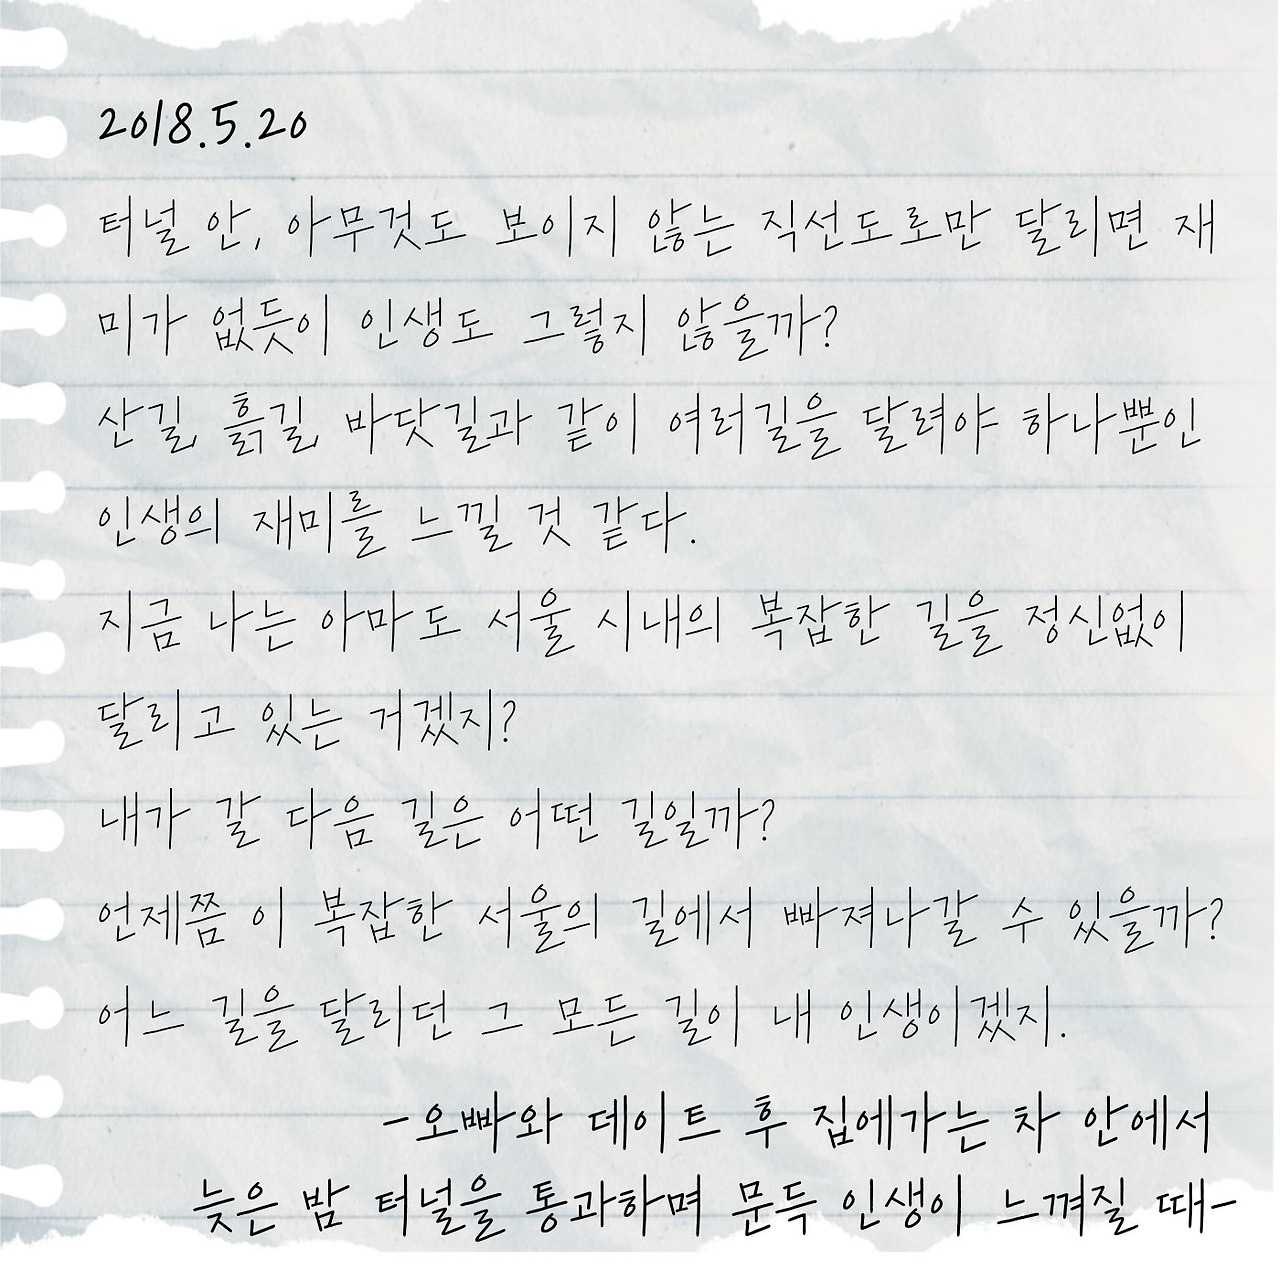 2018.5.20
터널 안, 아무것도 보이지 않는 직선도로만 달리면 재
미가 없듯이 인생도 그렇지 않을까?
산길, 흙길, 바닷길과 같이 여러길을 달려야 하나뿐인
인생의 재미를 느낄 것 같다.
지금 나는 아마도 서울 시내의 복잡한 길을 정신없이
달리고 있는 거겠지?
내가 갈 다음 길은 어떤 길일까?
언제쯤 이 복잡한 서울의 길에서 빠져나갈 수 있을까?
어느 길을 달리던 그 모든 길이 내 인생이겠지.
-오빠와 데이트 후 집에가는 차 안에서
늦은 밤 터널을 통과하며 문득 인생이 느껴질 때-